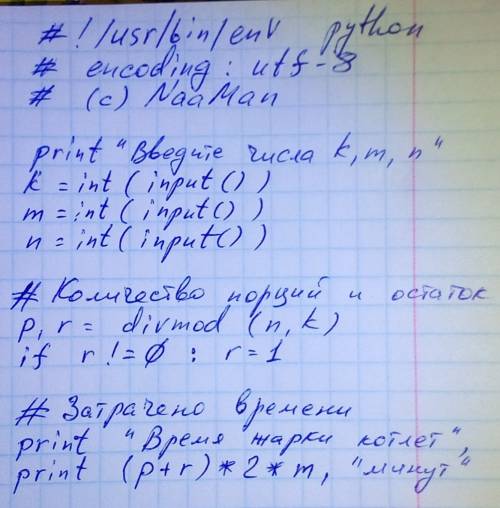 # !/usr/bin/env python
# encoding: utf-8
# (c) NaaMan
print "Введите числа k, m, n"
k = int (input())
m = int (input())
n = int (input())
# Количество порций и остаток
p, r = divmod (n, k)
if r != 0 : r = 1
# Затрачено времени
print "Время жарки котлет",
print (p+r) * 2 * m, "минут"